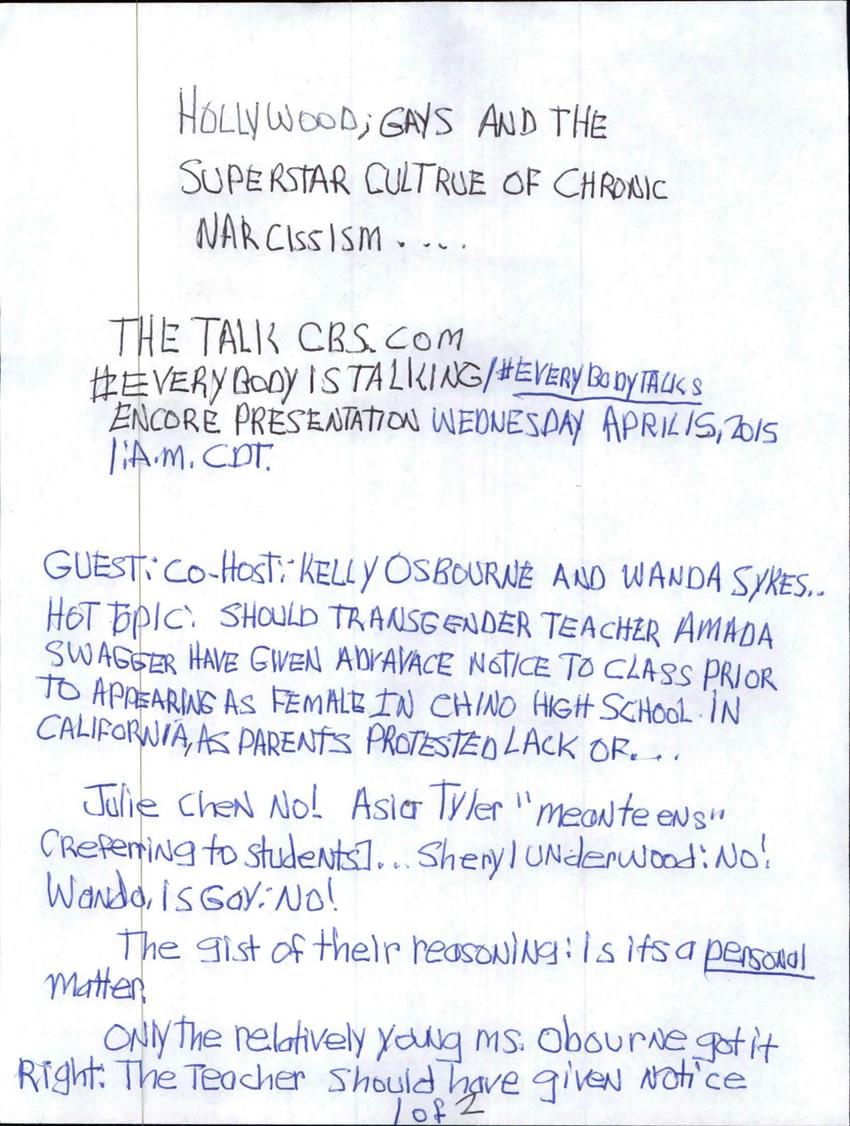 HOLLYWOOD; GAYS AND THE
SUPERSTAR CULTRUE OF CHRONIC
NARCISSISM....
THE TALK CBS.COM
#EVERYBODY IS TALKING/#EVERYBODYTALKS
ENCORE PRESENTATION WEDNESDAY APRIL 15, 2015
1:A.M. CDT.
GUEST: CO-HOST: KELLY OSBOURNE AND WANDA SYKES..
HOT TOPIC: SHOULD TRANSGENDER TEACHER AMADA
SWAGGER HAVE GIVEN ADVAVACE NOTICE TO CLASS PRIOR
TO APPEARING AS FEMALE IN CHINO HIGH SCHOOL IN
CALIFORNIA, AS PARENTS PROTESTED LACK OR....
Julie Chen NO! Asia Tyler "meanteens"
(Referring to students]... Sheryl UNderwood: No!
Wanda, is Gay: No!
The gist of their reasoning: is its a personal
matter.
ONly The relatively young ms. Obourne got it
Right: The Teacher should have given notice
1 of 2